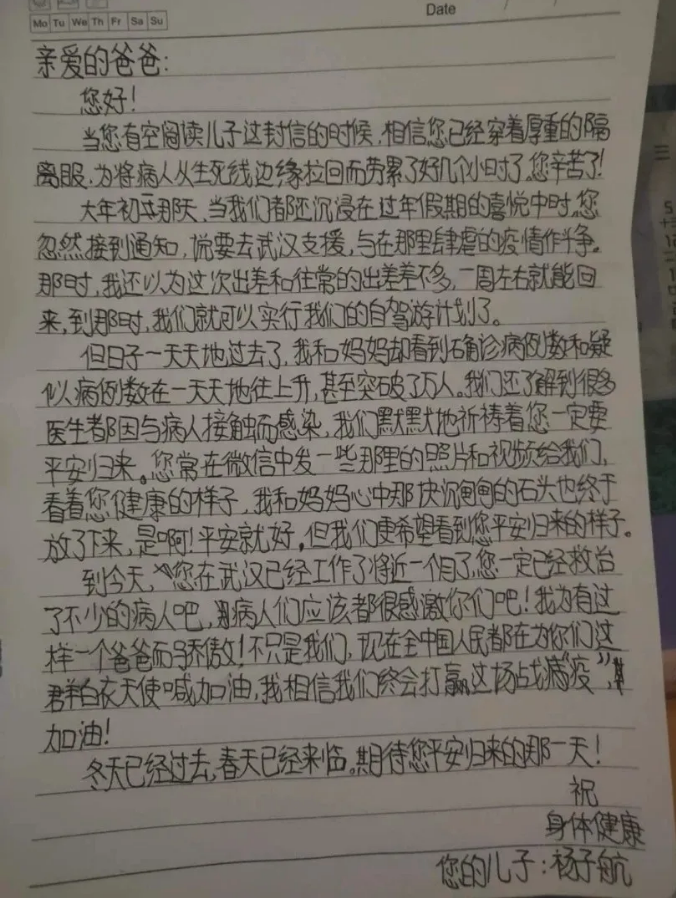 Mo Tu We Th Fr Sa Su
Date / /
亲爱的爸爸：
您好！
当您有空阅读儿子这封信的时候，相信您已经穿着厚重的隔
离服，为将病人从生死线边缘拉回而劳累了好几个小时了，您辛苦了！
大年初五那天，当我们都还沉浸在过年假期的喜悦中时，您
忽然接到通知，说要去武汉支援，与在那里肆虐的疫情作斗争。
那时，我还以为这次出差和往常的出差差不多，一周左右就能回
来，到那时，我们就可以实行我们的自驾游计划了。
但日子一天天地过去了，我和妈妈却看到确诊病例数和疑
似病例数在一天天地往上升，甚至突破了万人。我们还了解到很多
医生都因与病人接触而感染，我们默默地祈祷着您一定要
平安归来。您常在微信中发一些那里的照片和视频给我们，
看着您健康的样子，我和妈妈心中那块沉甸甸的石头也终于
放了下来，是啊！平安就好，但我们更希望看到您平安归来的样子。
到今天，您在武汉已经工作了将近一个月了，您一定已经救治
了不少的病人吧，病人们应该都很感激你们吧！我为有这
样一个爸爸而骄傲！不只是我们，现在全中国人民都在为你们这
群白衣天使喊加油，我相信我们终会打赢这场战“疫”，
加油！
冬天已经过去，春天已经来临。期待您平安归来的那一天！
祝
身体健康
您的儿子：杨子航